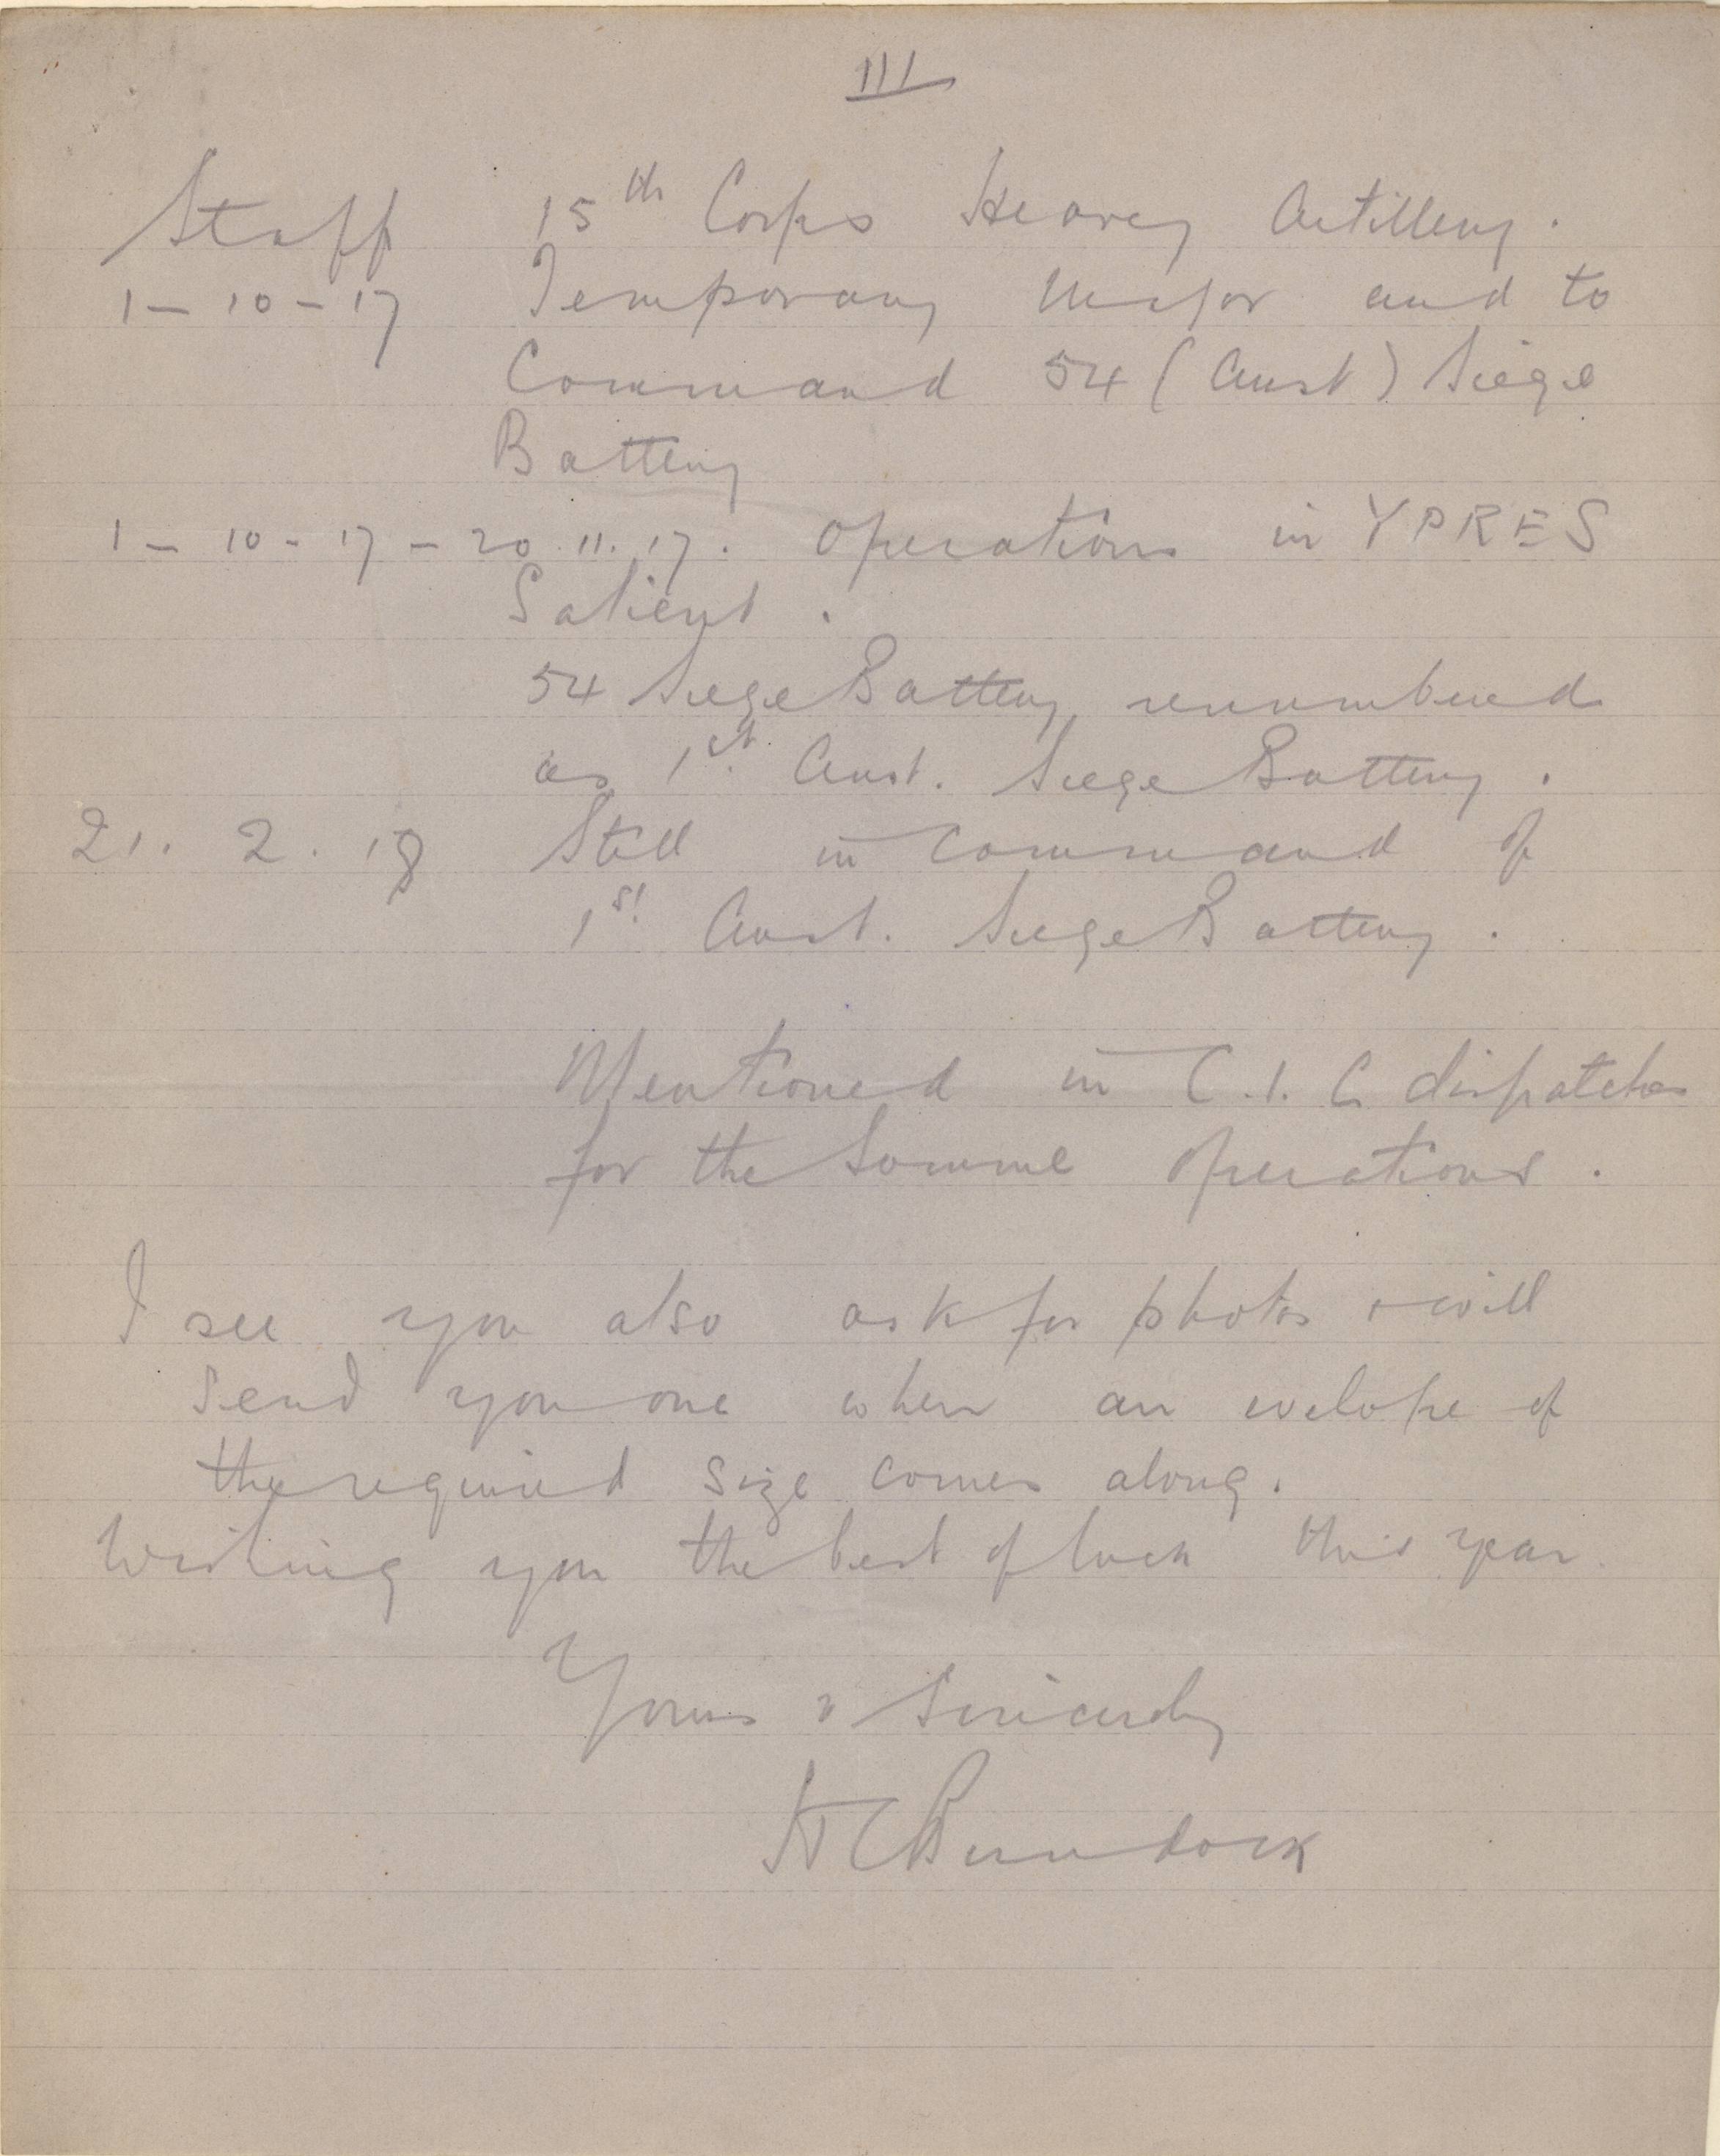 III
Staff 15th Corps Heavy Artillery.
1-10-17 Temporary Major and to
Command 54 (Aust) Siege
Battery
1-10-17-20.11.17. Operations in YPRES
Salient.
54 Siege Battery renumbered
as 1st. Aust. Siege Battery.
21.2.18 Still in command of
1st Aust. Siege Battery.
Mentioned in C.I.C dispatches
for the Somme Operations.
I see you also ask for photos & will
send you one when an evelope of
the required size comes along.
Wishing you the best of luck this year.
Yours Sincerely